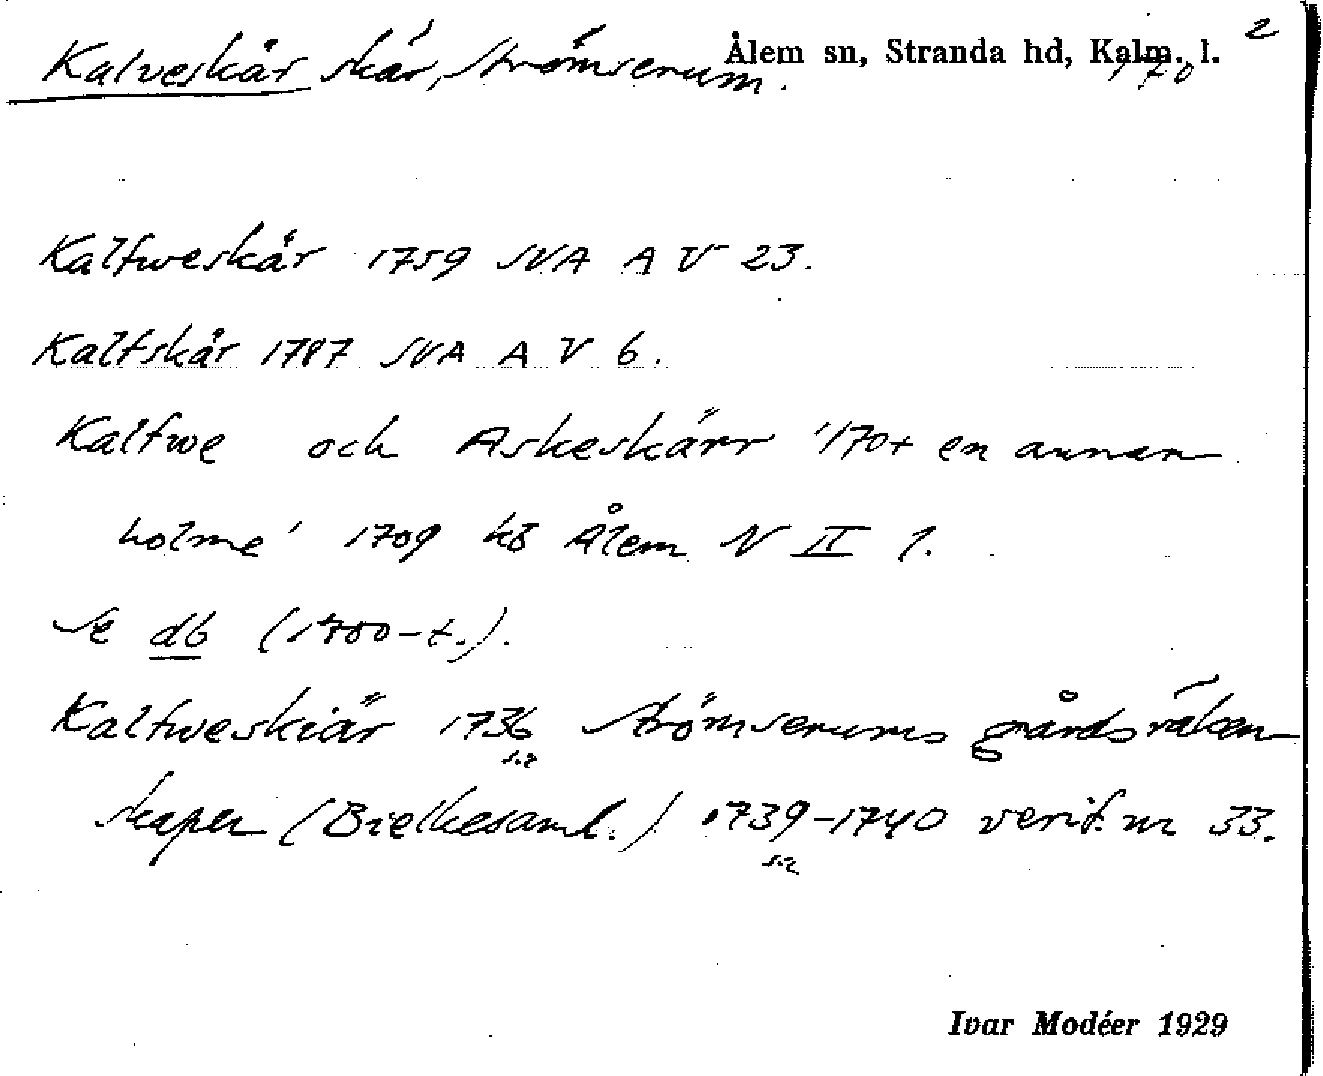 Kalveskär skär, Strömserum. Ålem sn, Stranda hd, Kalm. l. 2
170
Kalfweskär 1759 SVA A V 23.
Kalfskär 1787 SVA A V 6.
Kalfwe och Askeskärr '170+ en annan
holme' 1709 kB Ålem N II 1.
Se db (1700-t.).
Kalfweskiär 1736 Strömserums gårdsräken
skaper (Bielkesaml.) 1739-1740 verif. nr 33.
Ivar Modéer 1929